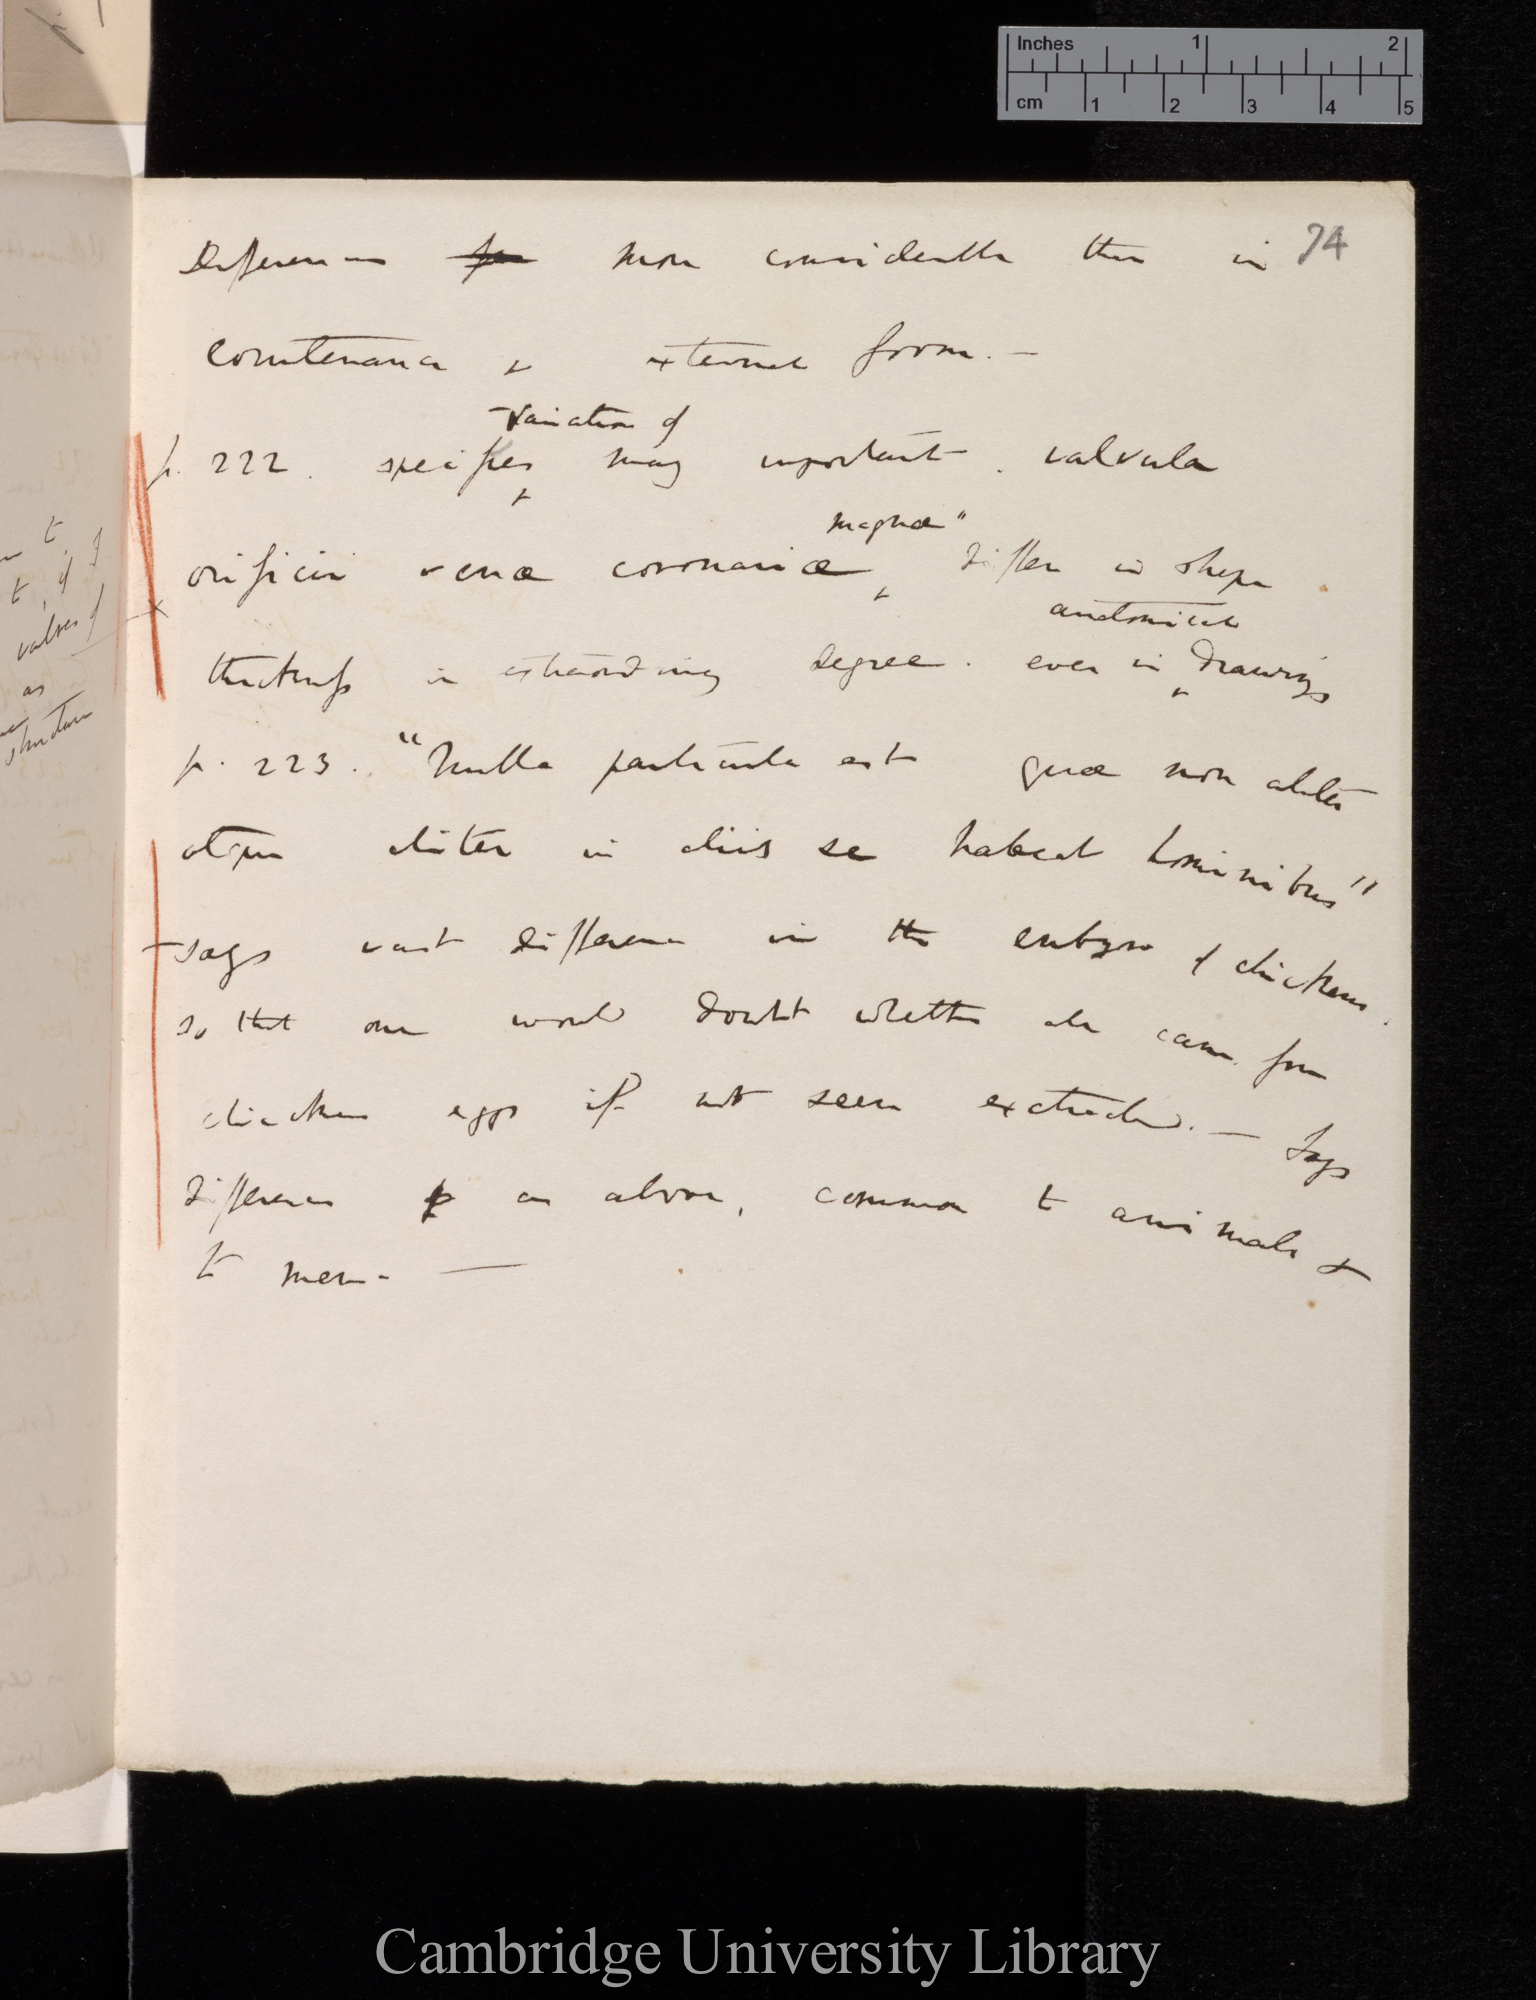 Inches 1 2
cm 1 2 3 4 5
74
Differences more considerable than in
countenance & external form. —
variation of
p. 222. specifies many important. valvula
magnæ"
orificii venæ coronariæ differ in shape
anatomical
thickness in extraordinary degree. even in drawings
p. 223. "Nulla particula est quæ non aliter
atque aliter in aliis se habeat hominibus"
says vast difference in the embryo of chickens.
so that one would doubt whether all came from
chicken eggs if not seen extracted. — Says
difference as above, common to animals &
to men. —
t
t, if
valves of
as
structure
Cambridge University Library